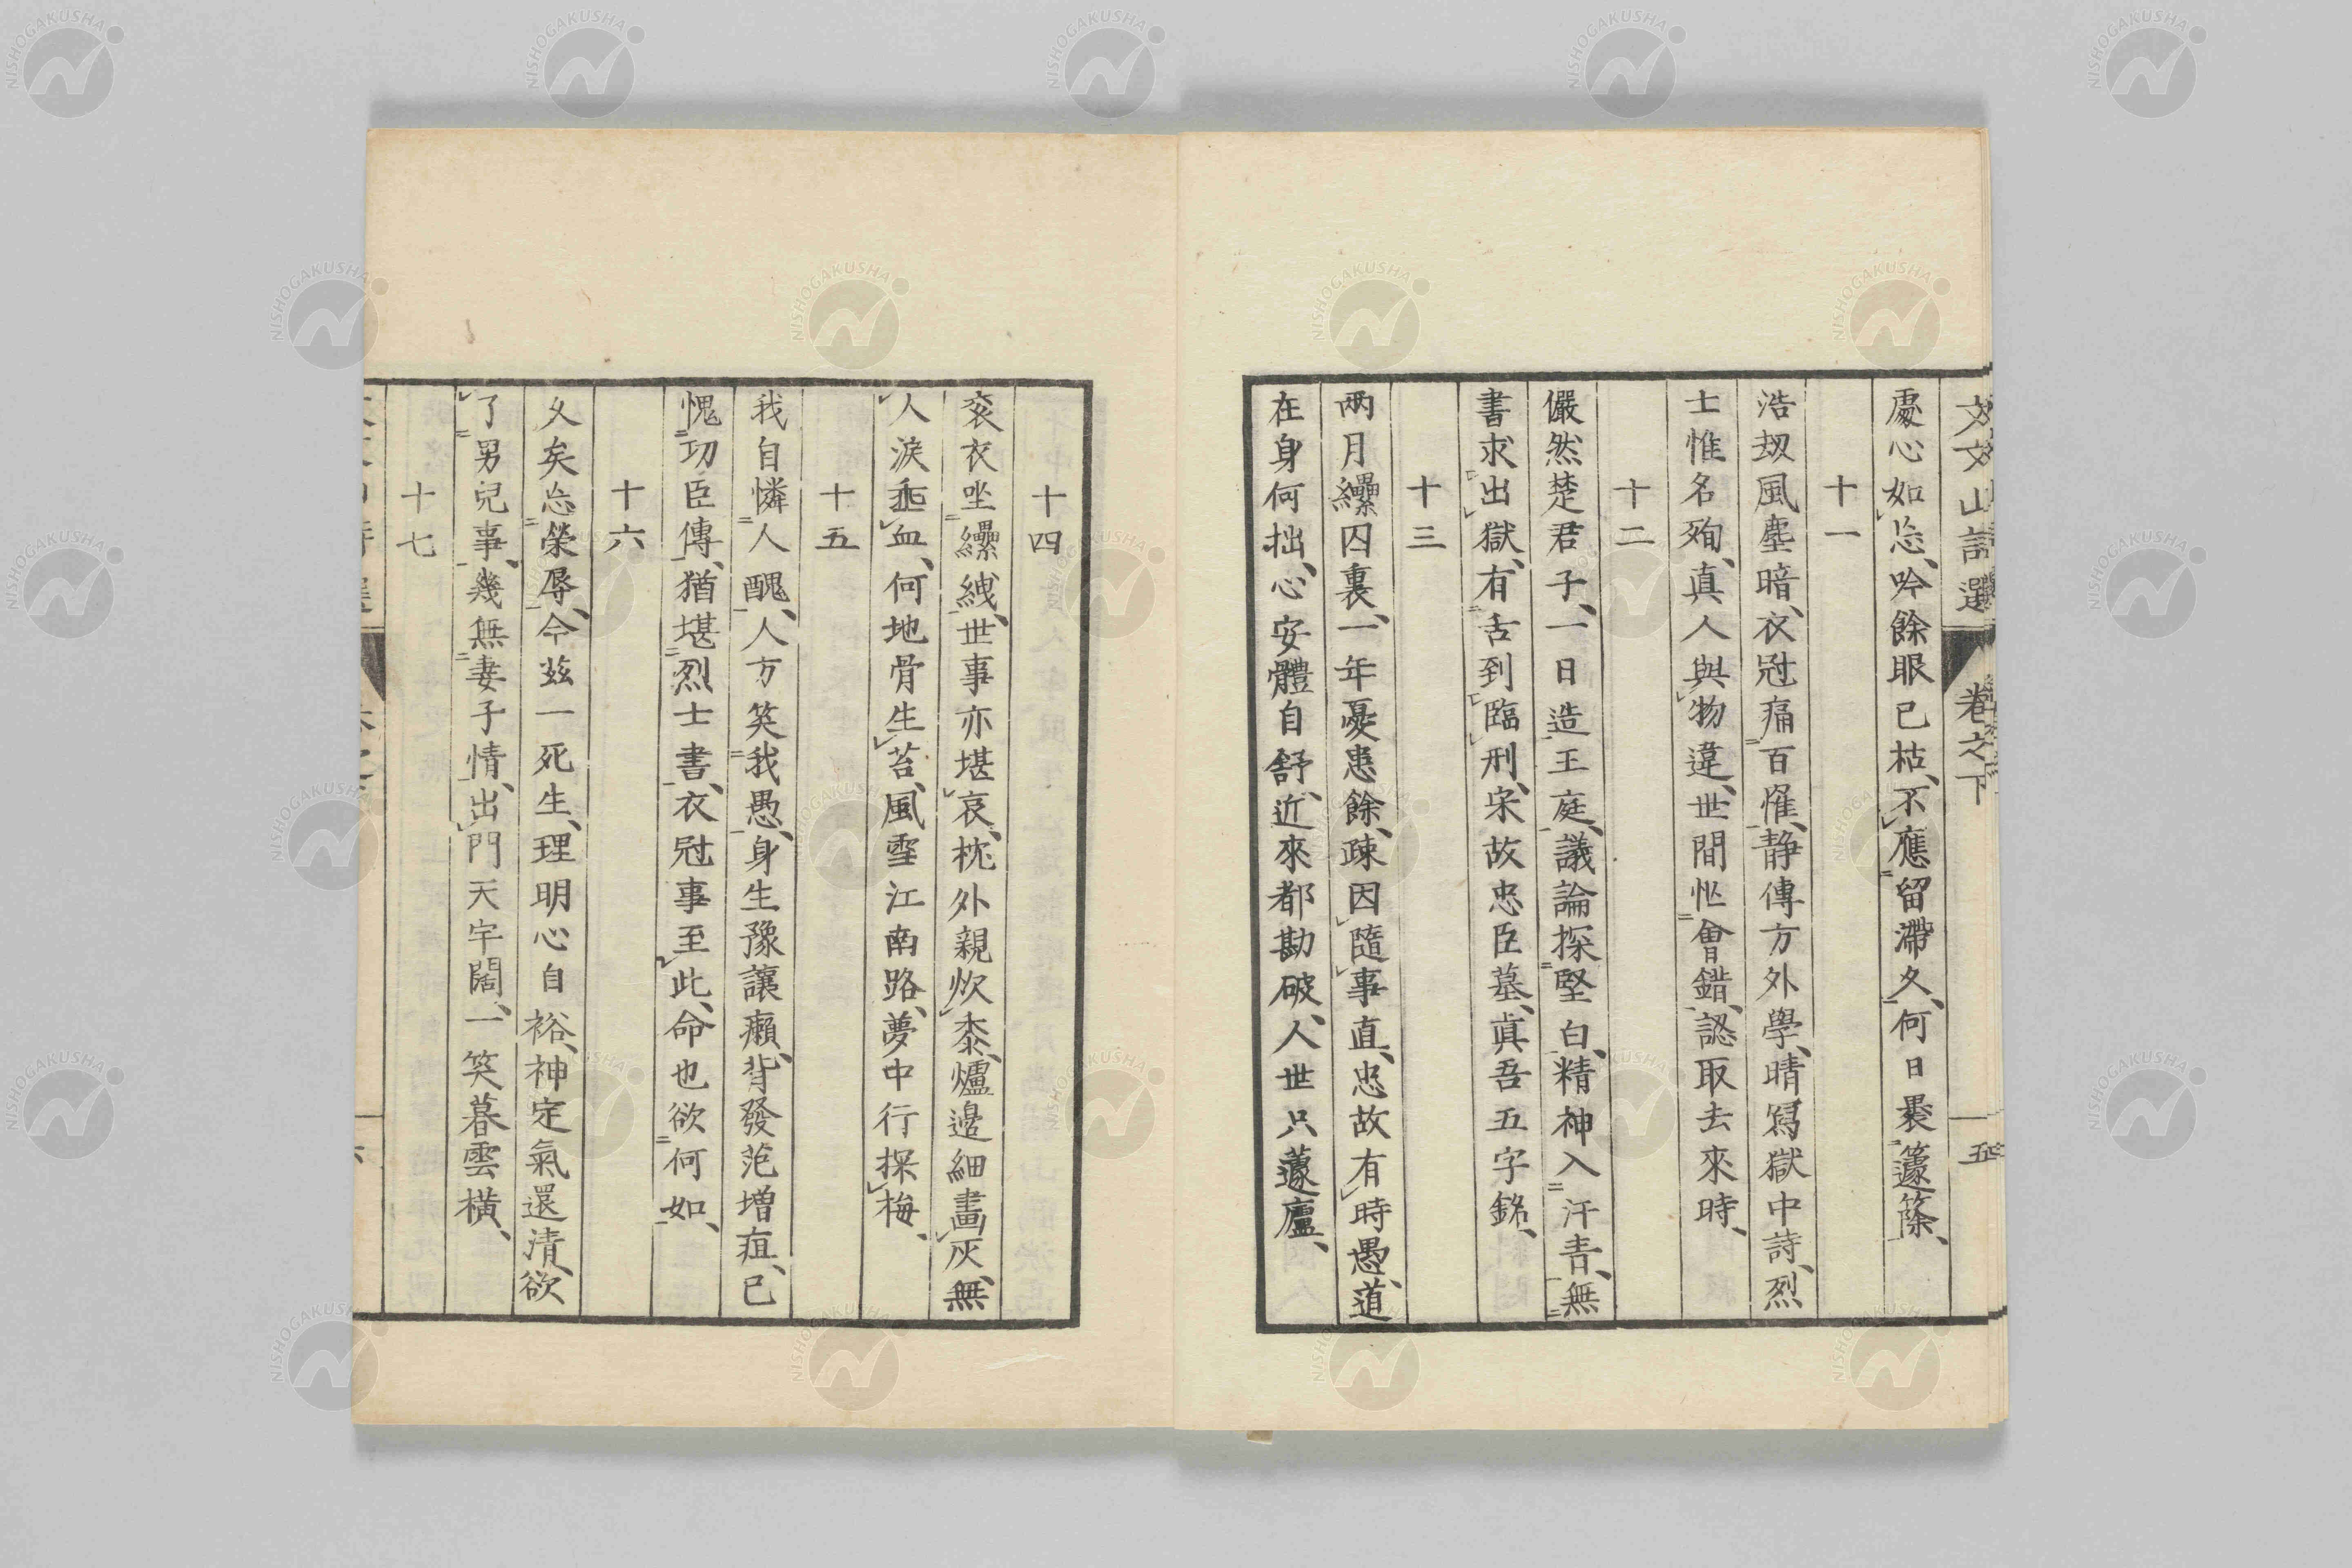 文文山詩選 卷之下 五
處心如忘、吟餘眼已枯、不應留滯久、何日裹籧篨、
十一
浩刼風塵暗、衣冠痛百罹、靜傳方外學、晴寫獄中詩、烈
士惟名殉、真人與物違、世間忙會錯、認取去來時、
十二
儼然楚君子、一日造王庭、議論探堅白、精神入汗青、無
書求出獄、有舌到臨刑、宋故忠臣墓、眞吾五字銘、
十三
兩月纍囚裏、一年憂患餘、疎因隨事直、忠故有時愚、道
在身何拙、心安體自舒、近來都勘破、人世只蘧廬、
十四
袞衣坐縲絏、世事亦堪哀、枕外親炊黍、爐邊細畫灰、無
人淚垂血、何地骨生苔、風雪江南路、夢中行探梅、
十五
我自憐人醜、人方笑我愚、身生豫讓癩、背發范增疽、已
愧功臣傳、猶堪烈士書、衣冠事至此、命也欲何如、
十六
久矣忘榮辱、今玆一死生、理明心自裕、神定氣還清、欲
了男兒事、幾無妻子情、出門天宇闊、一笑暮雲橫、
十七